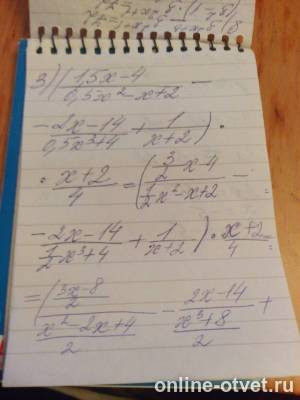 3) ( (1,5x-4)/(0,5x²-x+2) -
- (2x-14)/(0,5x³+4) + 1/(x+2) ) ·
· (x+2)/4 = ( (3/2 x-4)/(1/2 x²-x+2) -
- (2x-14)/(1/2 x³+4) + 1/(x+2) ) · (x+2)/4 =
= ( ((3x-8)/2)/((x²-2x+4)/2) - (2x-14)/((x³+8)/2) +
online-otvet.ru